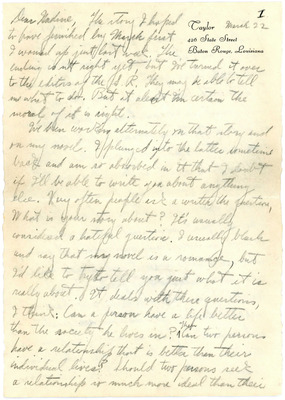 1
Taylor
March 22
426 State Street
Baton Rouge, Louisiana
Dear Nadine, The story I hoped
to have finished by March first
I wound up just last week. The
ending isn't right yet but I've turned it over
to the editors of the S. R. They may be able to tell
me what to do. But at about I'm certain the
moral of it is right.
I've been working alternately on that story and
on my novel. I plunged into the latter sometime
back and am so absorbed in it that I doubt
if I'll be able to write you about anything
else. Very often people ask a writer the question,
What is your story about? It's usually
considered a hateful question. I usually blank
and say that my novel is a romance, but
I'd like to try to tell you just what it is
really about. It deals with these questions,
I think: Can a person have a life better
than the society he lives in? Can two persons
have a relationship that is better than their
individual lives? Should two persons seek
a relationship so much more ideal than their